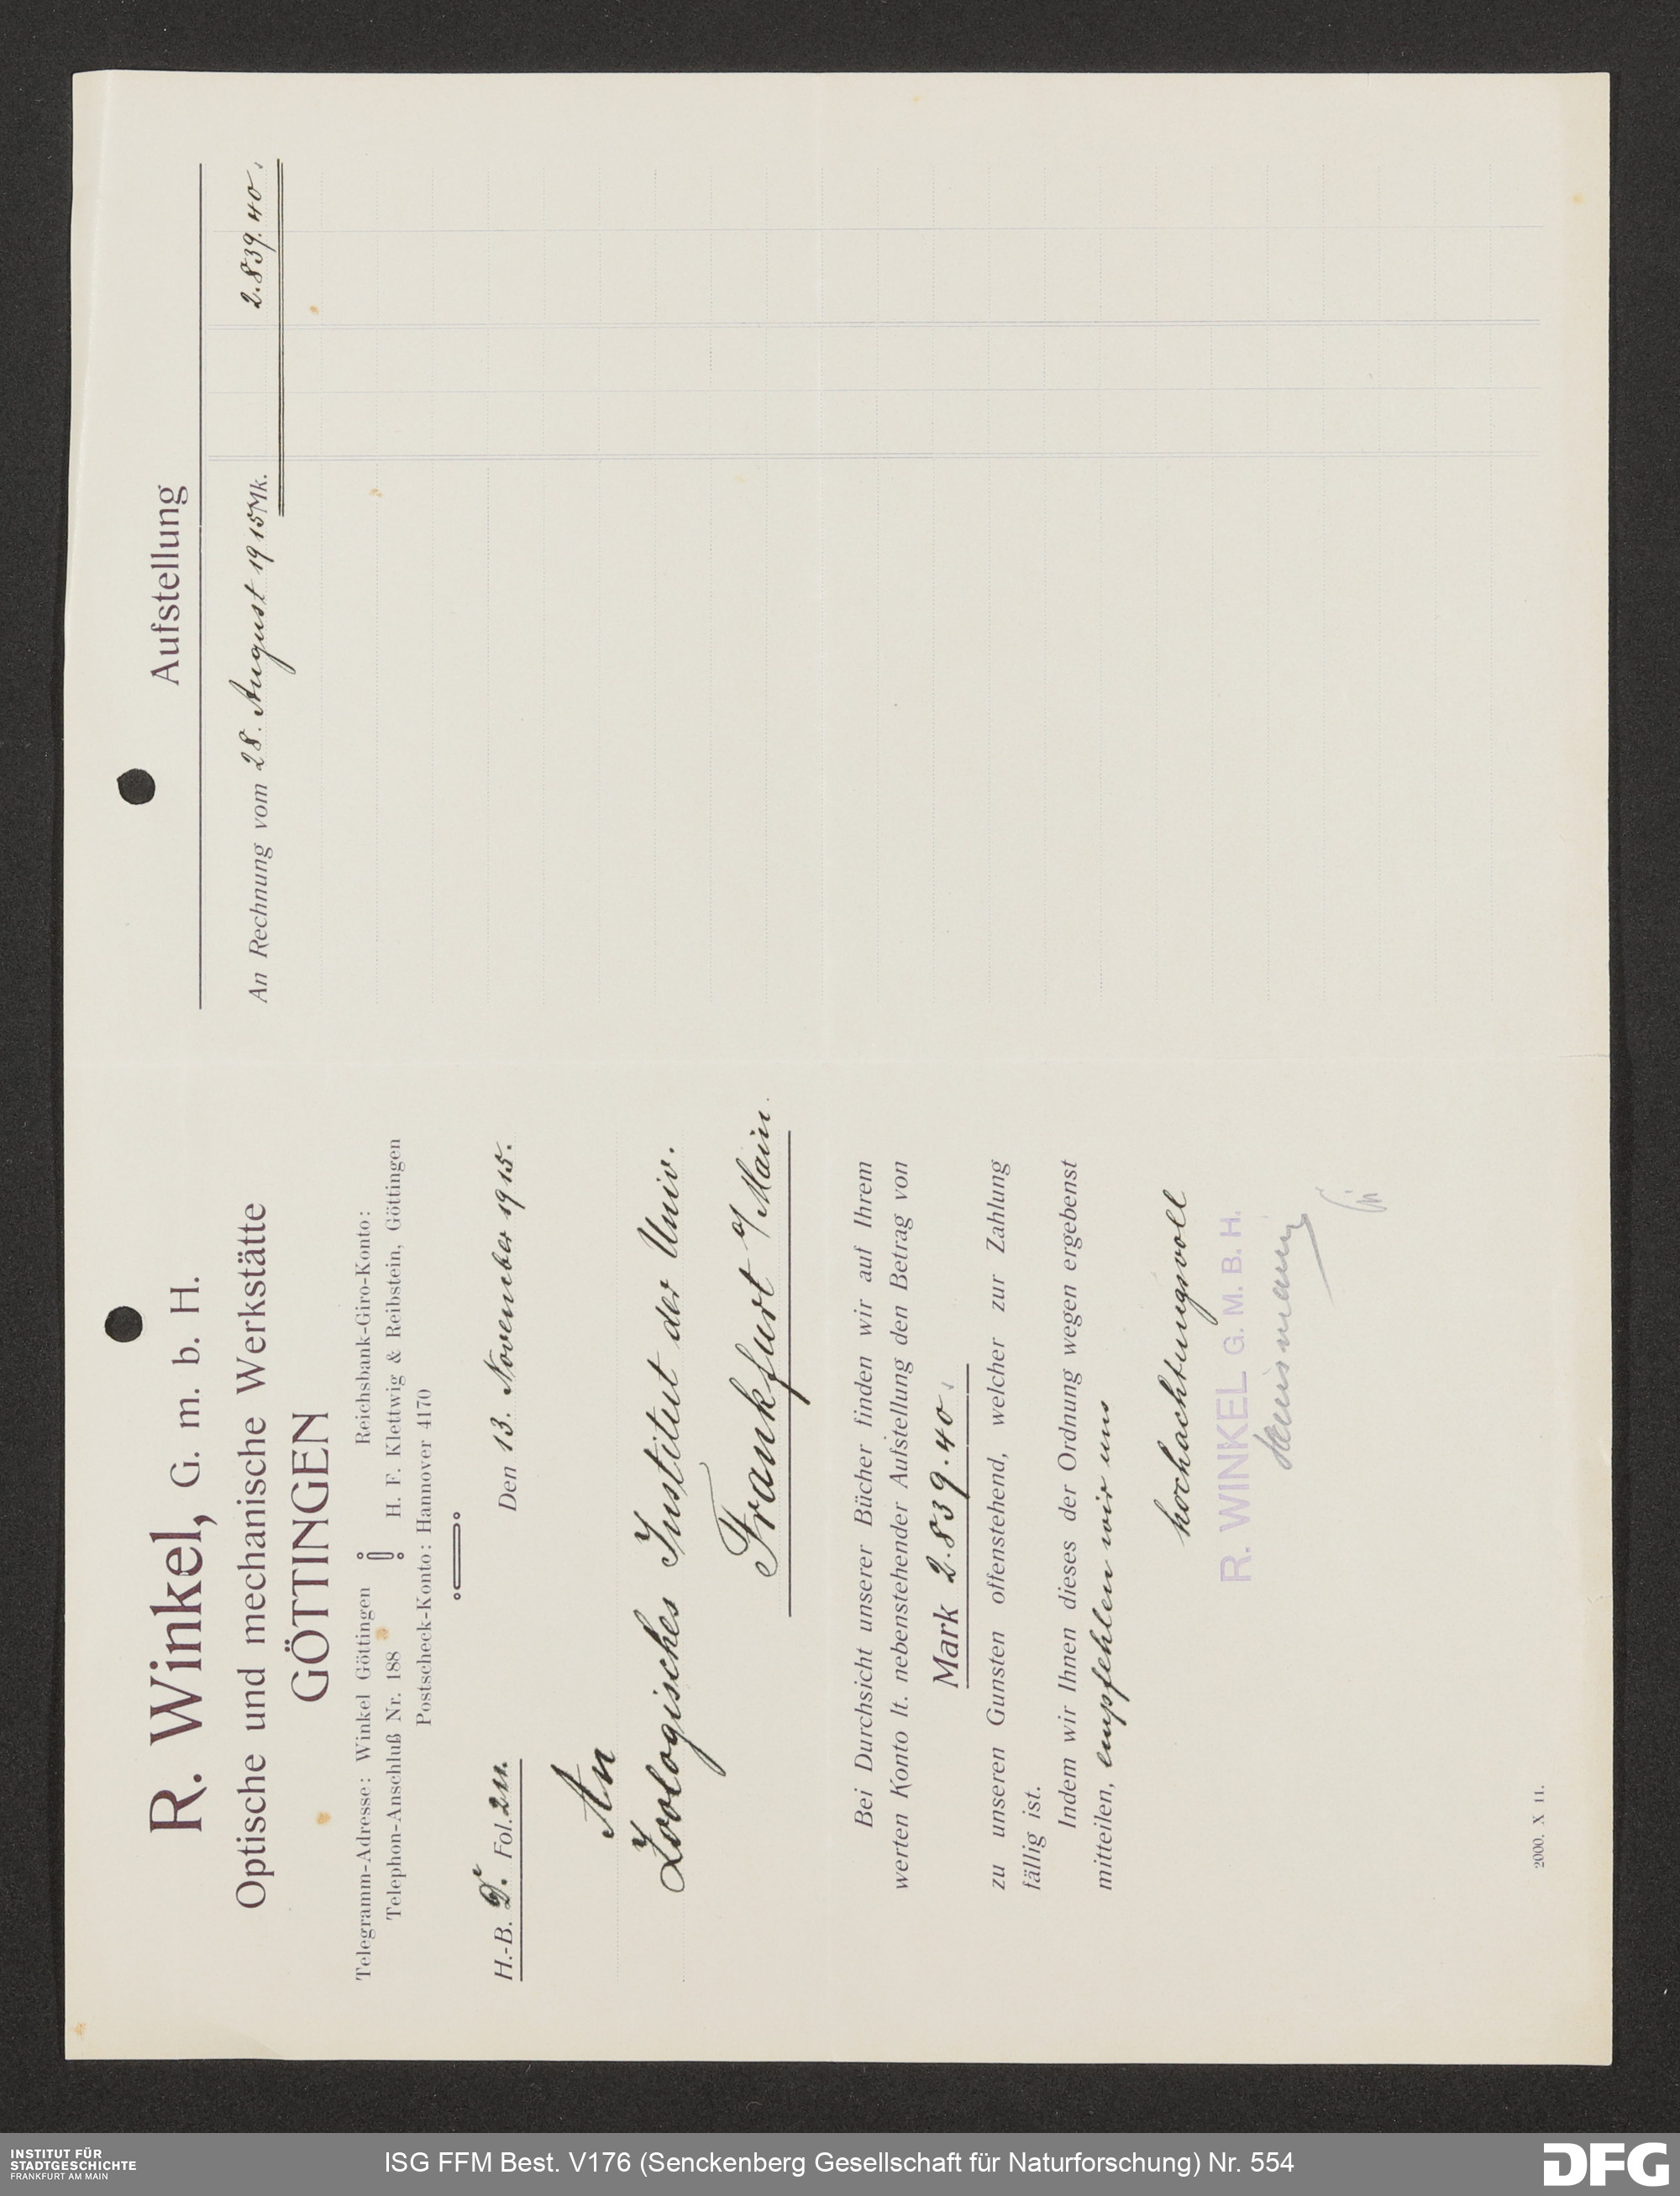 R. Winkel, G. m. b. H.
Optische und mechanische Werkstätte
GÖTTINGEN
Telegramm-Adresse: Winkel Göttingen
Telephon-Anschluß Nr. 188
Reichsbank-Giro-Konto:
H. F. Klettwig & Reibstein, Göttingen
Postscheck-Konto: Hannover 4170
H.-B. Fol. 211.
Den 13. November 1915.
An
Zoologisches Institut der Univ.
Frankfurt a/Main.
Bei Durchsicht unserer Bücher finden wir auf Ihrem
werten Konto lt. nebenstehender Aufstellung den Betrag von
Mark 2.839.40.
zu unseren Gunsten offenstehend, welcher zur Zahlung
fällig ist.
Indem wir Ihnen dieses der Ordnung wegen ergebenst
mitteilen, empfehlen wir uns
hochachtungsvoll
R. WINKEL G. M. B. H.
2000. X 11.
Aufstellung
An Rechnung vom 28. August 1915 Mk. 2.839.40.
INSTITUT FÜR
STADTGESCHICHTE
FRANKFURT AM MAIN
ISG FFM Best. V176 (Senckenberg Gesellschaft für Naturforschung) Nr. 554
DFG